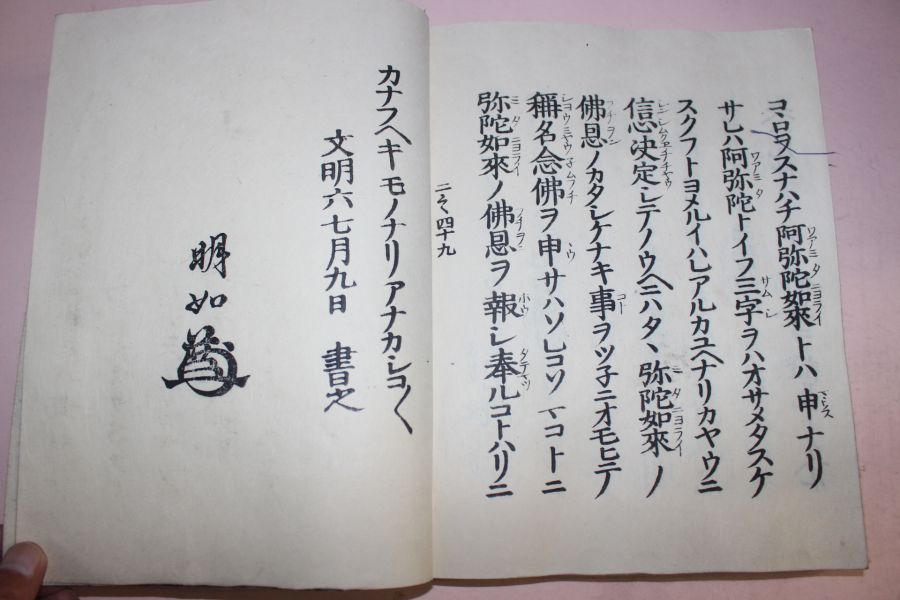 コヽロヲスナハチ阿弥陀如來トハ申ナリ
サレハ阿弥陀トイフ三字ヲハオサメタスケ
スクフトヨメルイハレアルカユヘナリカヤウニ
信心决定シテノウヘニハタヽ弥陀如來ノ
佛恩ノカタシケナキ事ヲツ子ニオモヒテ
稱名念佛ヲ申サハソレコソマコトニ
弥陀如來ノ佛恩ヲ報シ奉ルコトハリニ
二之四十九
カナフヘキモノナリアナカシコ〱
文明六七月九日 書之
明如